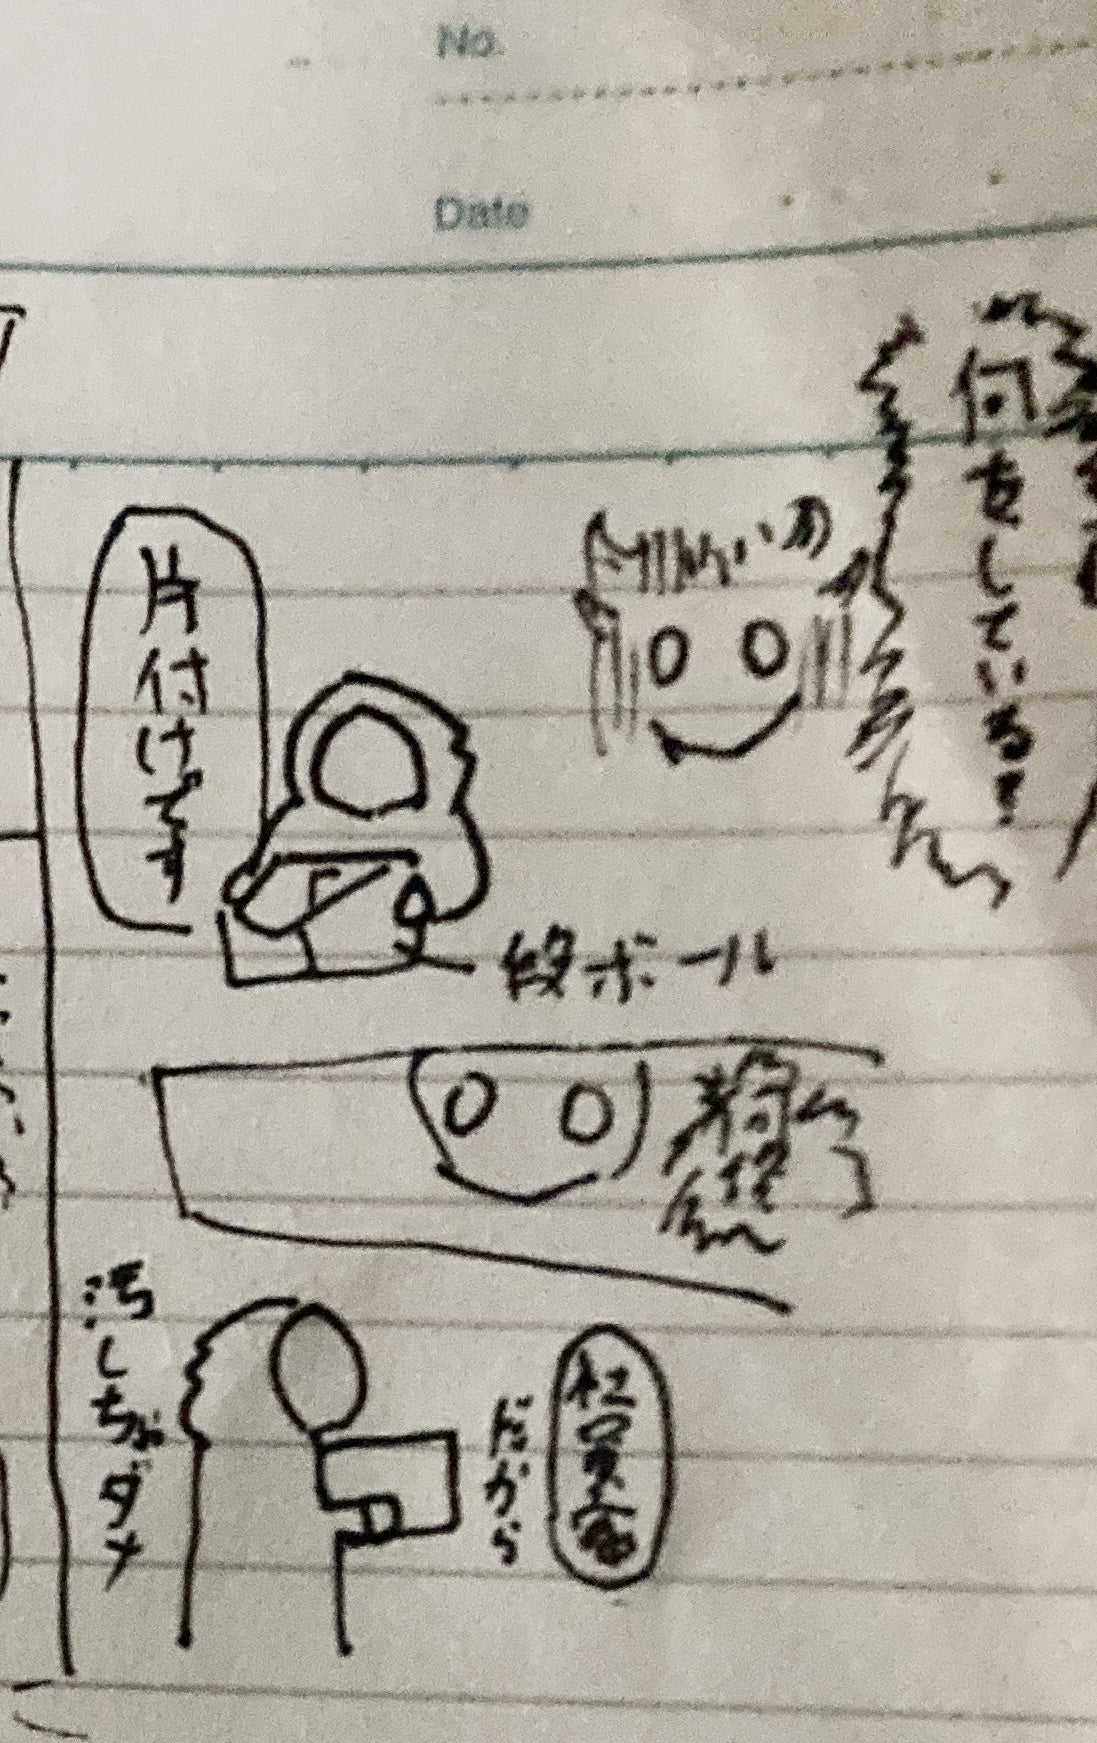 No.
Date
何をしている!
片付けです
段ボール
だから
汚しちゃダメ